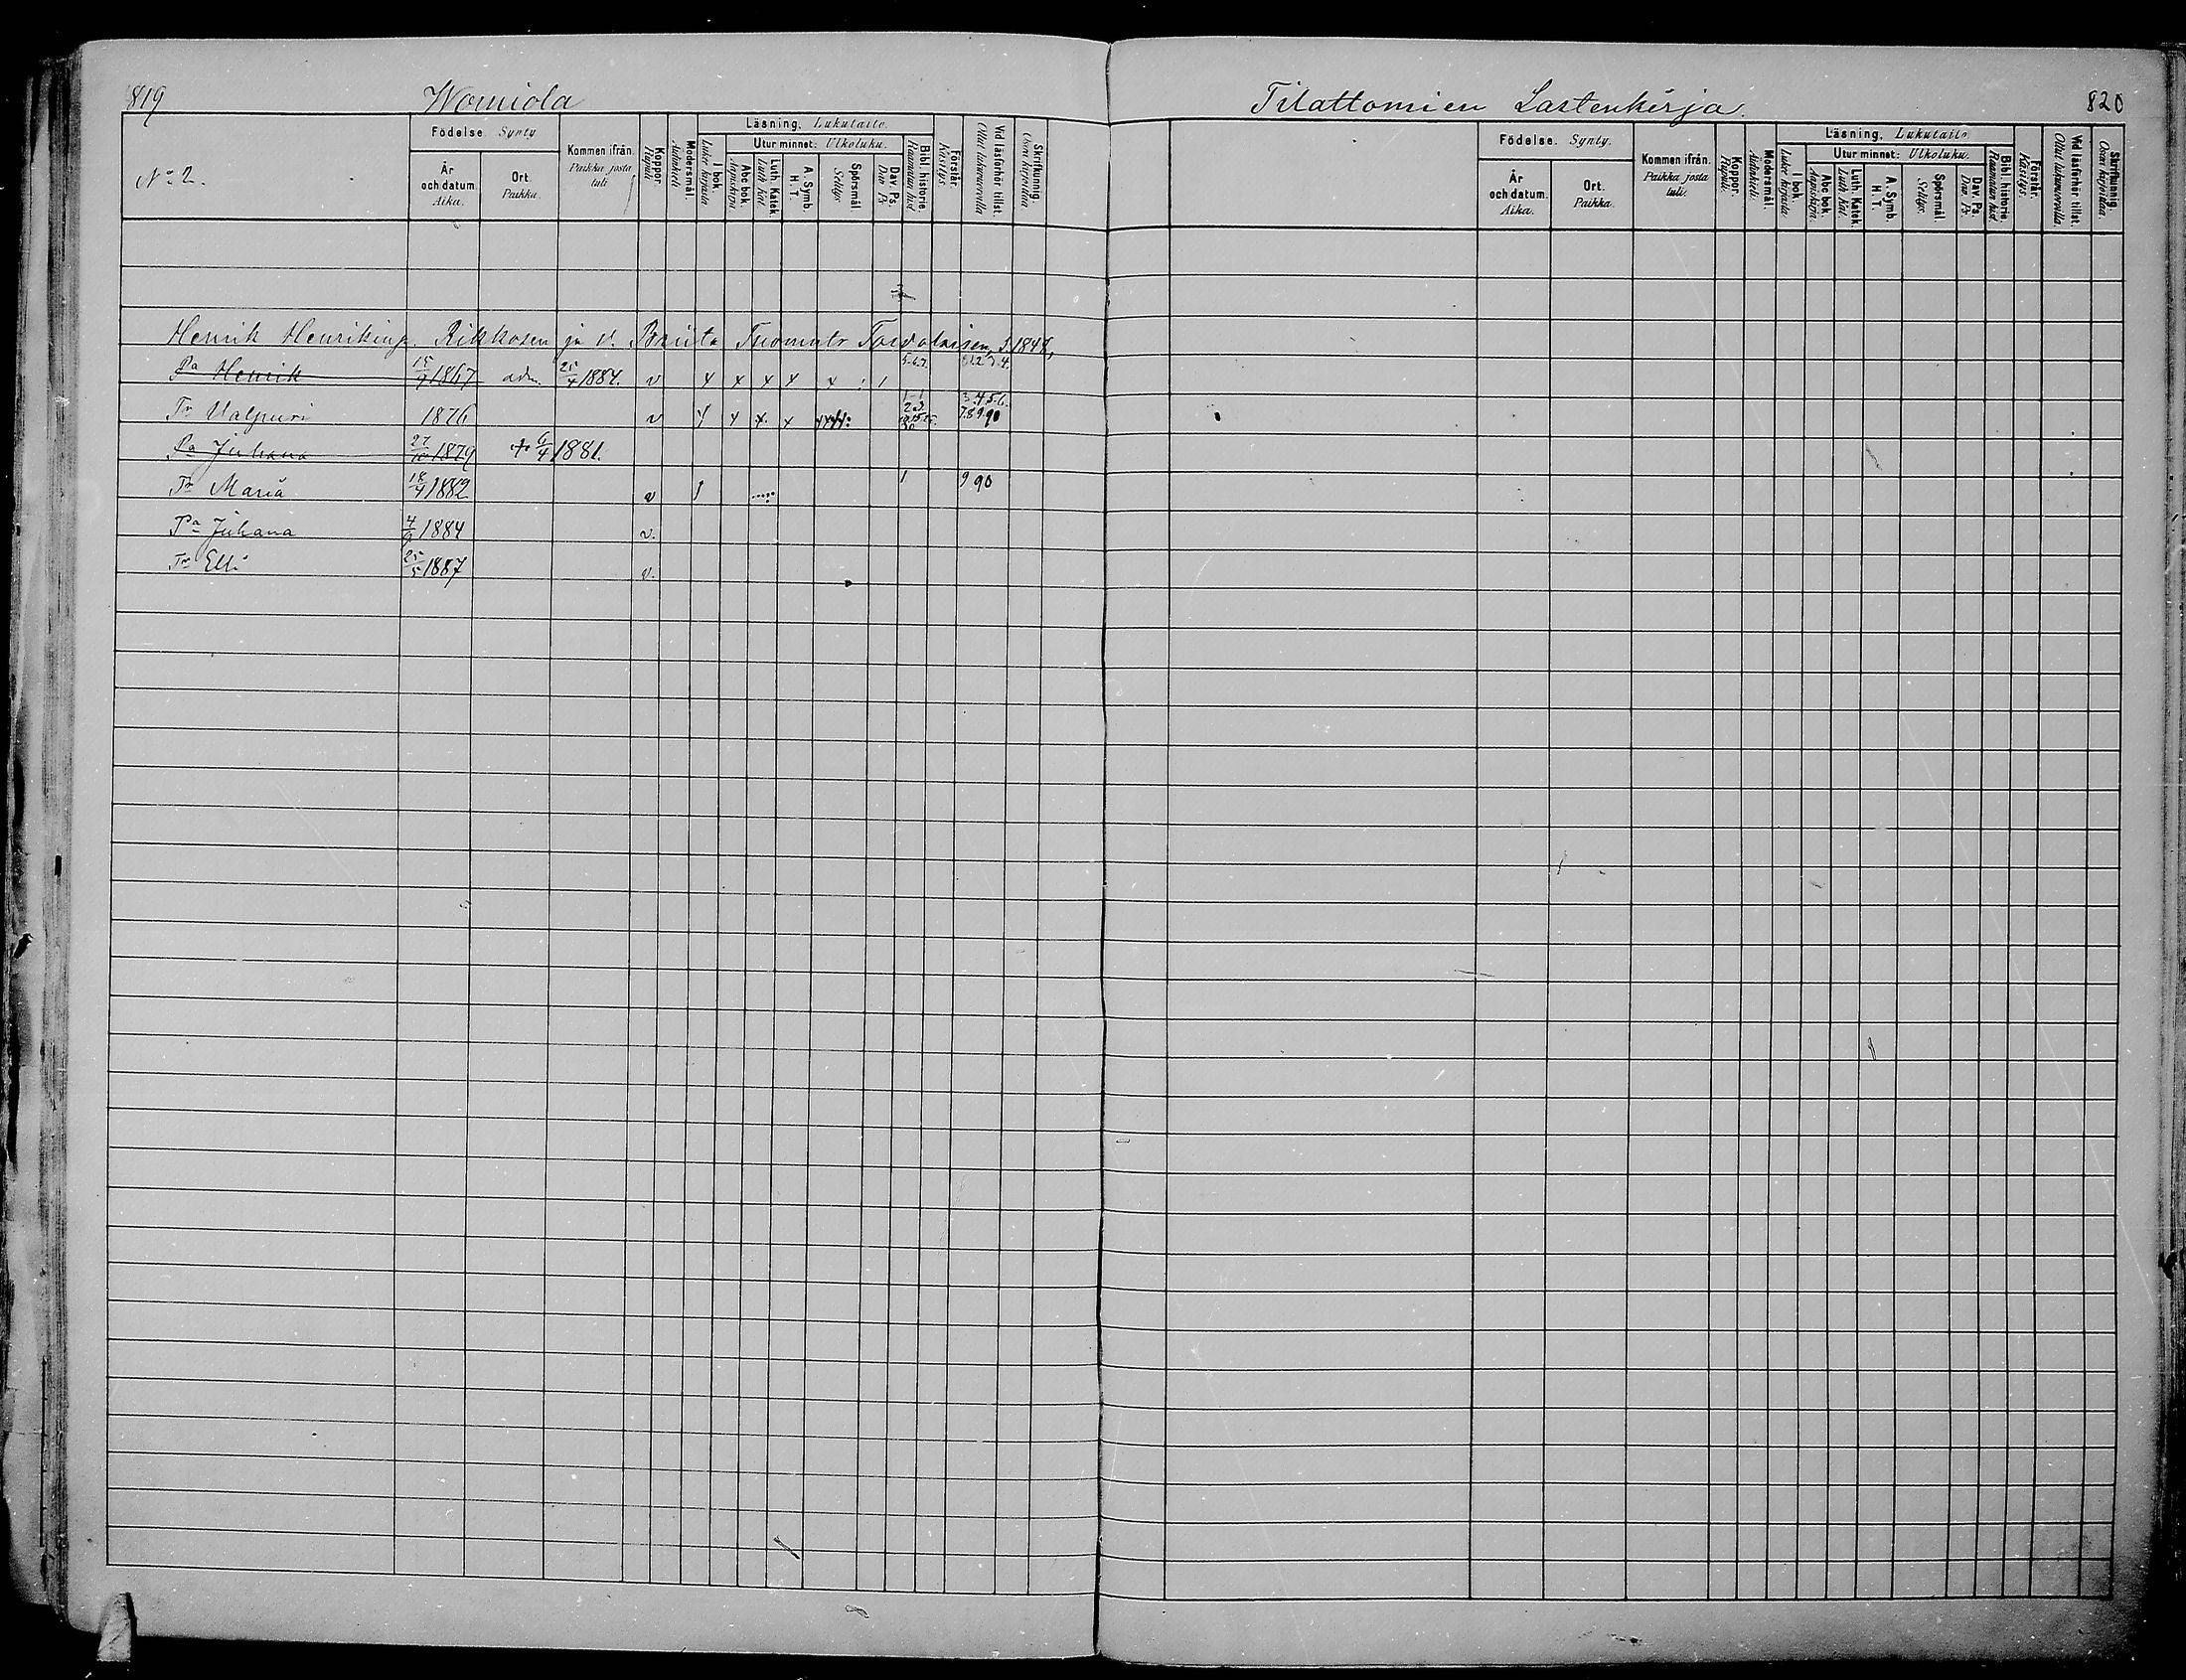 819 Womiola
No 2.
Födelse. Synty
År och datum. Aika.
Ort. Paikka.
Kommen ifrån. Paikka josta tuli
Koppor. Rupuli
Modersmål. Äidinkieli
Läsning. Lukutaito.
I bok. Lukee kirjasta
Utur minnet: Ulkoluku.
Abc bok. Aapiskirja
Luth. Katek. Luth. Kat.
A. Symb. H. T.
Spörsmål. Selitys
Dav. Ps. Dav. Ps.
Bibl. historie. Raamatun hist.
Förstår. Käsitys
Vid läsförhör tillst. Ollut lukuvuorolla
Skrifkunnig. Osaa kirjoittaa
Henrik Henrikinp. Rikkosen ja v. Briita Tuomaint S. 1848,
Pa Henrik 15/9 1867 adm. 25/4 1884. v x x x x x : 1 5.6.7. 81.2.3.4.
Tr Valpuri 1876 v x x x. x 3.4.5.6. 7.8.9.90
Pa Juhana 27/10 1879 + 6/4 1881.
Tr Maria 18/4 1882 v 1 1 9 90
Pa Juhana 4/9 1884 v.
Tr Elli 25/5 1887 v.
Tilattomien Lastenkirja. 820
Födelse. Synty.
År och datum. Aika.
Ort. Paikka.
Kommen ifrån. Paikka josta tuli.
Koppor. Rupuli.
Modersmål. Äidinkieli.
Läsning. Lukutaito
I bok. Lukee kirjasta.
Utur minnet: Ulkoluku.
Abc bok. Aapiskirja.
Luth. Katek. Luth. Kat.
A. Symb. H. T.
Spörsmål. Selitys.
Dav. Ps. Dav. Ps.
Bibl. historie. Raamatun hist.
Förstår. Käsitys.
Vid läsförhör tillst. Ollut lukuvuorolla.
Skrifkunnig. Osaa kirjoittaa.